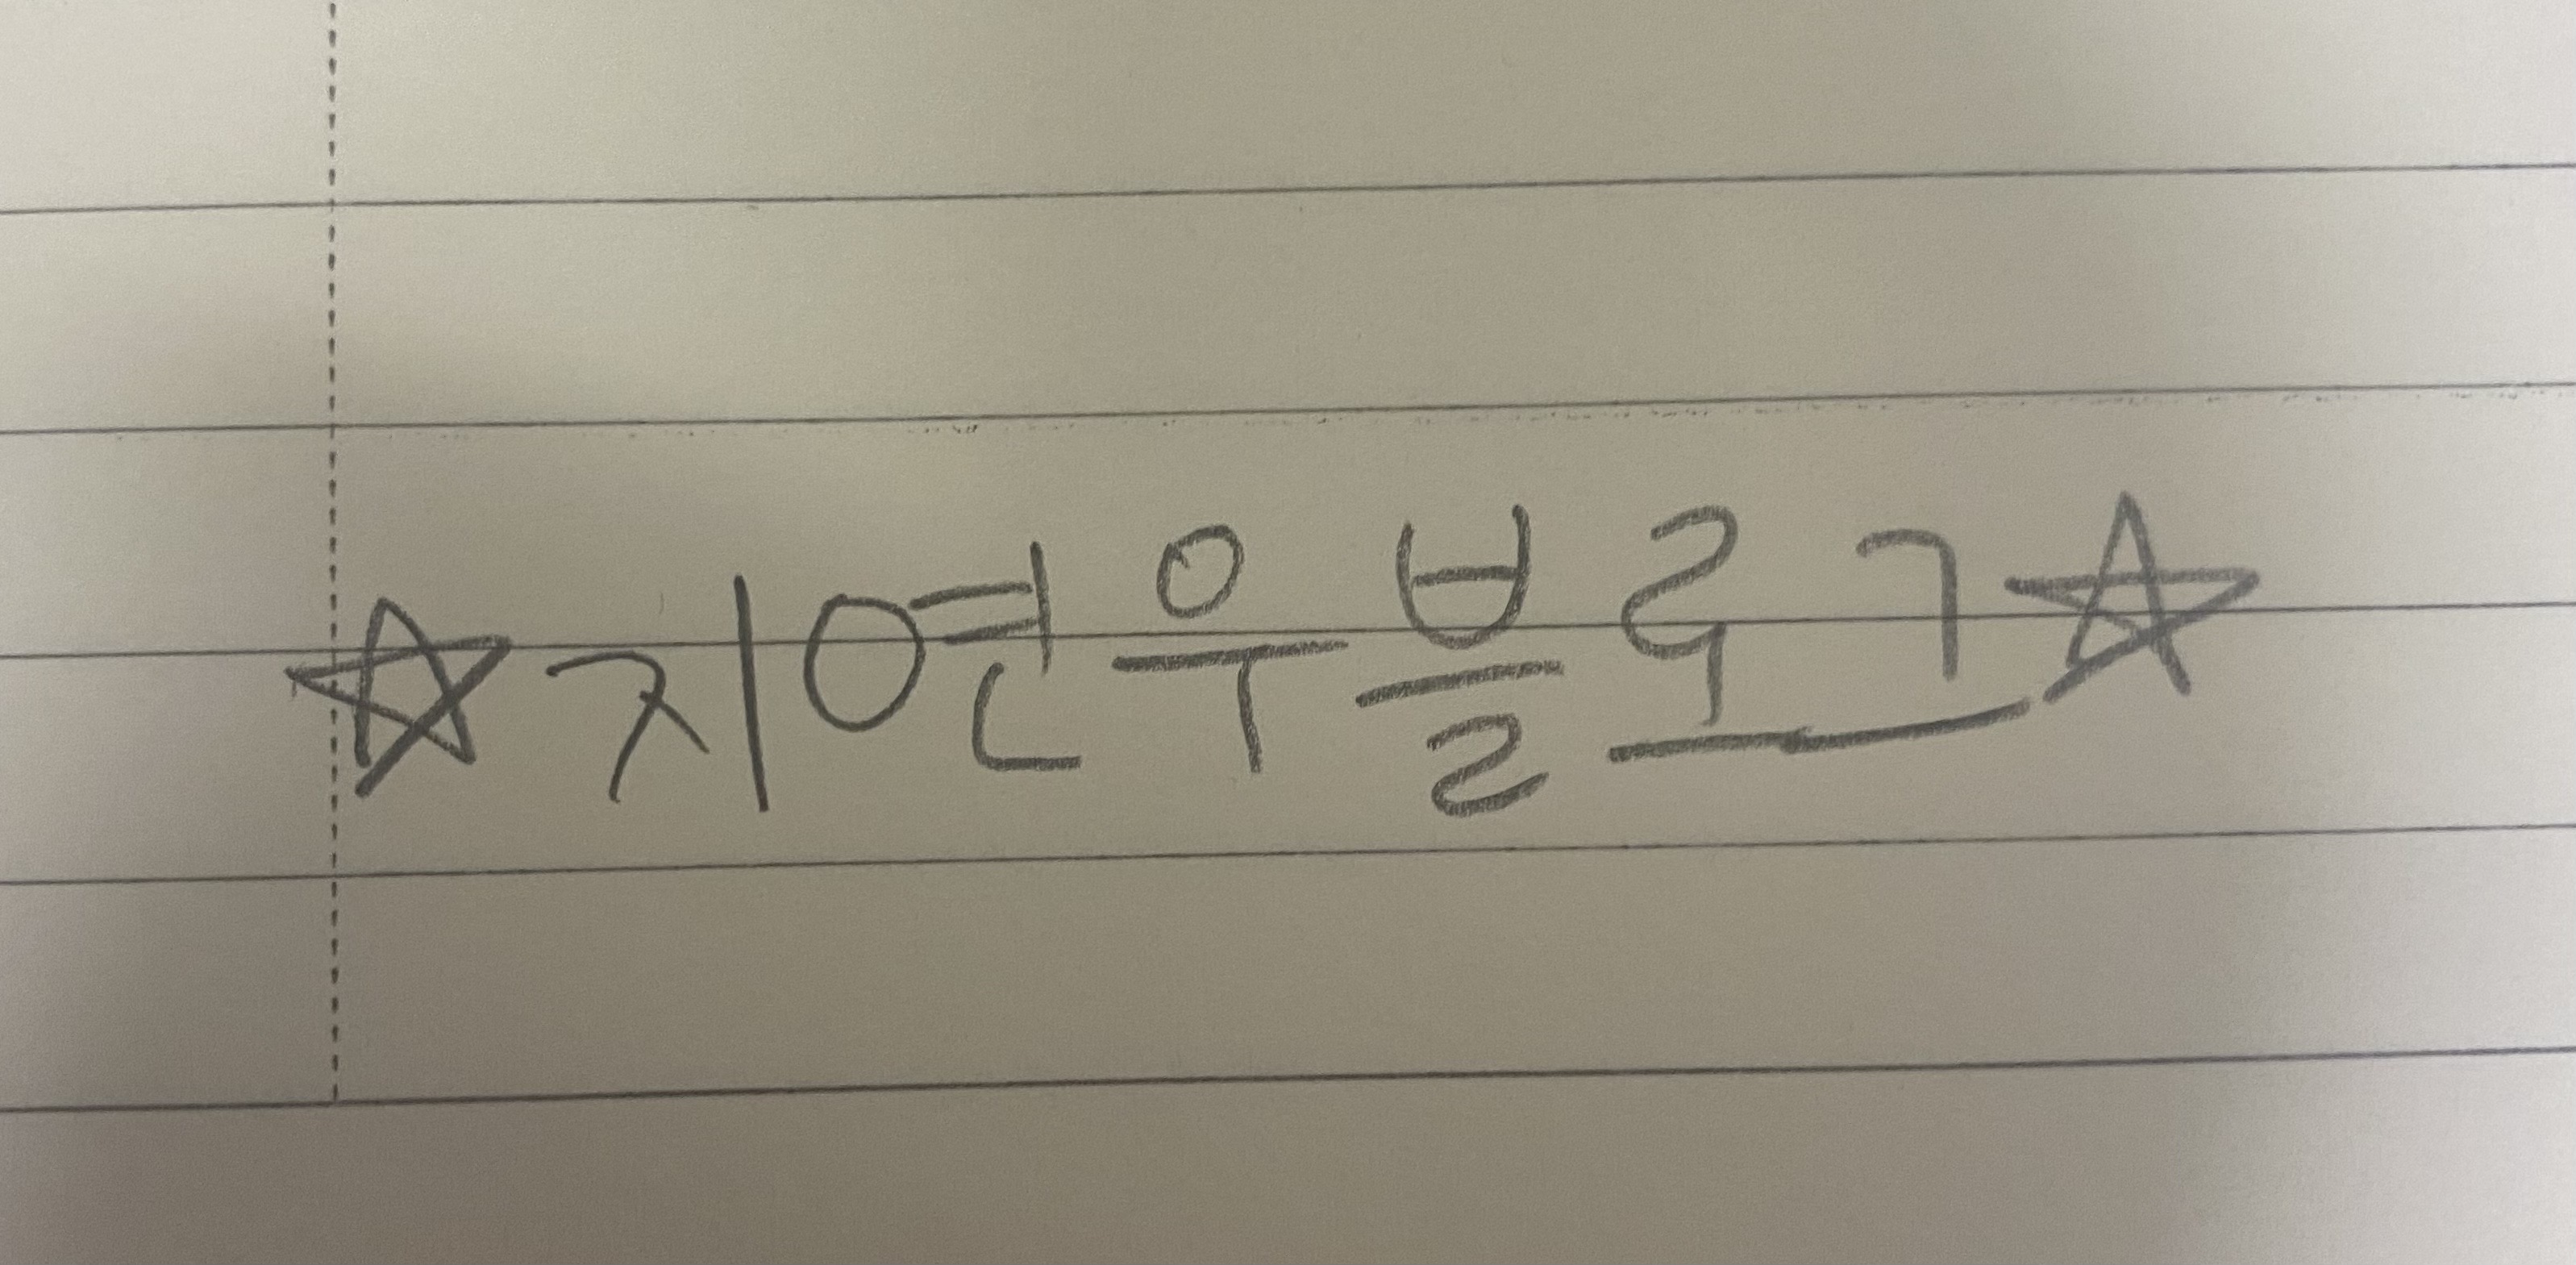 ☆지연우블로그☆